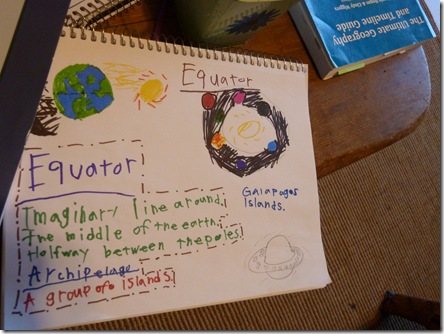 The Ultimate Geography
and Timeline Guide
Equator
Equator
Imaginary line around
The middle of the earth.
Halfway between thepoles.
Archipelago
A group of islands.
Galapagos
Islands.